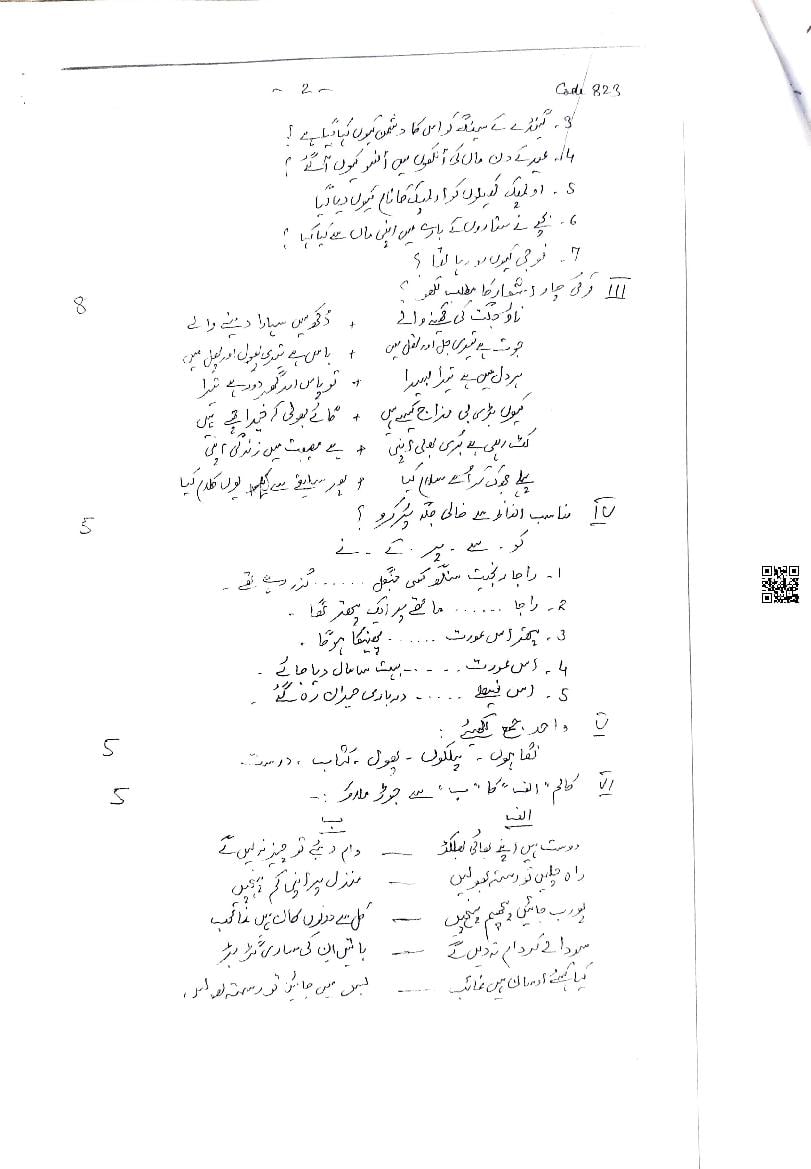 - 2 -
Code 823
3. گینڈے کے سینگ کو اس کا دشمن کیوں کہا گیا ہے؟
4. عید کے دن ماں کی آنکھوں میں آنسو کیوں آگئے؟
5. اولمپک کھیلوں کو اولمپک کا نام کیوں دیا گیا
6. بچے نے ستاروں کے بارے میں اپنی ماں سے کیا کہا؟
7. فوجی کیوں رو رہا تھا؟
III کوئی چار اشعار کا مطلب لکھو؟ 8
ناؤ جگت کی کھینے والے + دُکھ میں سہارا دینے والے
جوت ہے تیری جل اور تھل میں + باس ہے تیری پھول اور پھل میں
ہر دل میں ہے تیرا بسیرا + تو پاس اور گھر دور ہے تیرا
کیوں بڑی بی مزاج کیسے ہیں + گائے بولی کہ خیر اچھے ہیں
کٹ رہی ہے بُری بھلی اپنی + ہے مصیبت میں زندگی اپنی
پہلے جھک کر اُسے سلام کیا + پھر سلیقے سے یوں کلام کیا
IV مناسب الفاظ سے خالی جگہ پُر کرو؟ 5
کو - سے - پر - کے - نے
1. راجا رنجیت سنگھ کسی جنگل ...... گزر رہے تھے۔
2. راجا ...... ماتھے پر ایک پتھر لگا۔
3. پتھر اس عورت ...... پھینکا ہوگا۔
4. اس عورت ..... بہت سامان دیا جائے۔
5. اس فیصلے ..... درباری حیران رہ گئے۔
V واحد جمع لکھیئے: 5
نگاہوں - پلکوں - پھول - کتاب - درست
VI کالم "الف" کا "ب" سے جوڑ ملاؤ:- 5
الف ب
دوست ہیں اپنے بھائی بھلکڑ — دام دیئے تو چیز نہ لیں گے
راہ چلیں تو رستہ بھولیں — منزل پر اپنی کم پہنچیں
پورب جائیں پچھم پہنچیں — کل سے دونوں کان ہیں غائب
سودا لے کر دام نہ دیں گے — باتیں ان کی ساری گڑ بڑ
کیا کہئے اوسان ہیں غائب — بس میں جائیں تو رستہ بھولیں